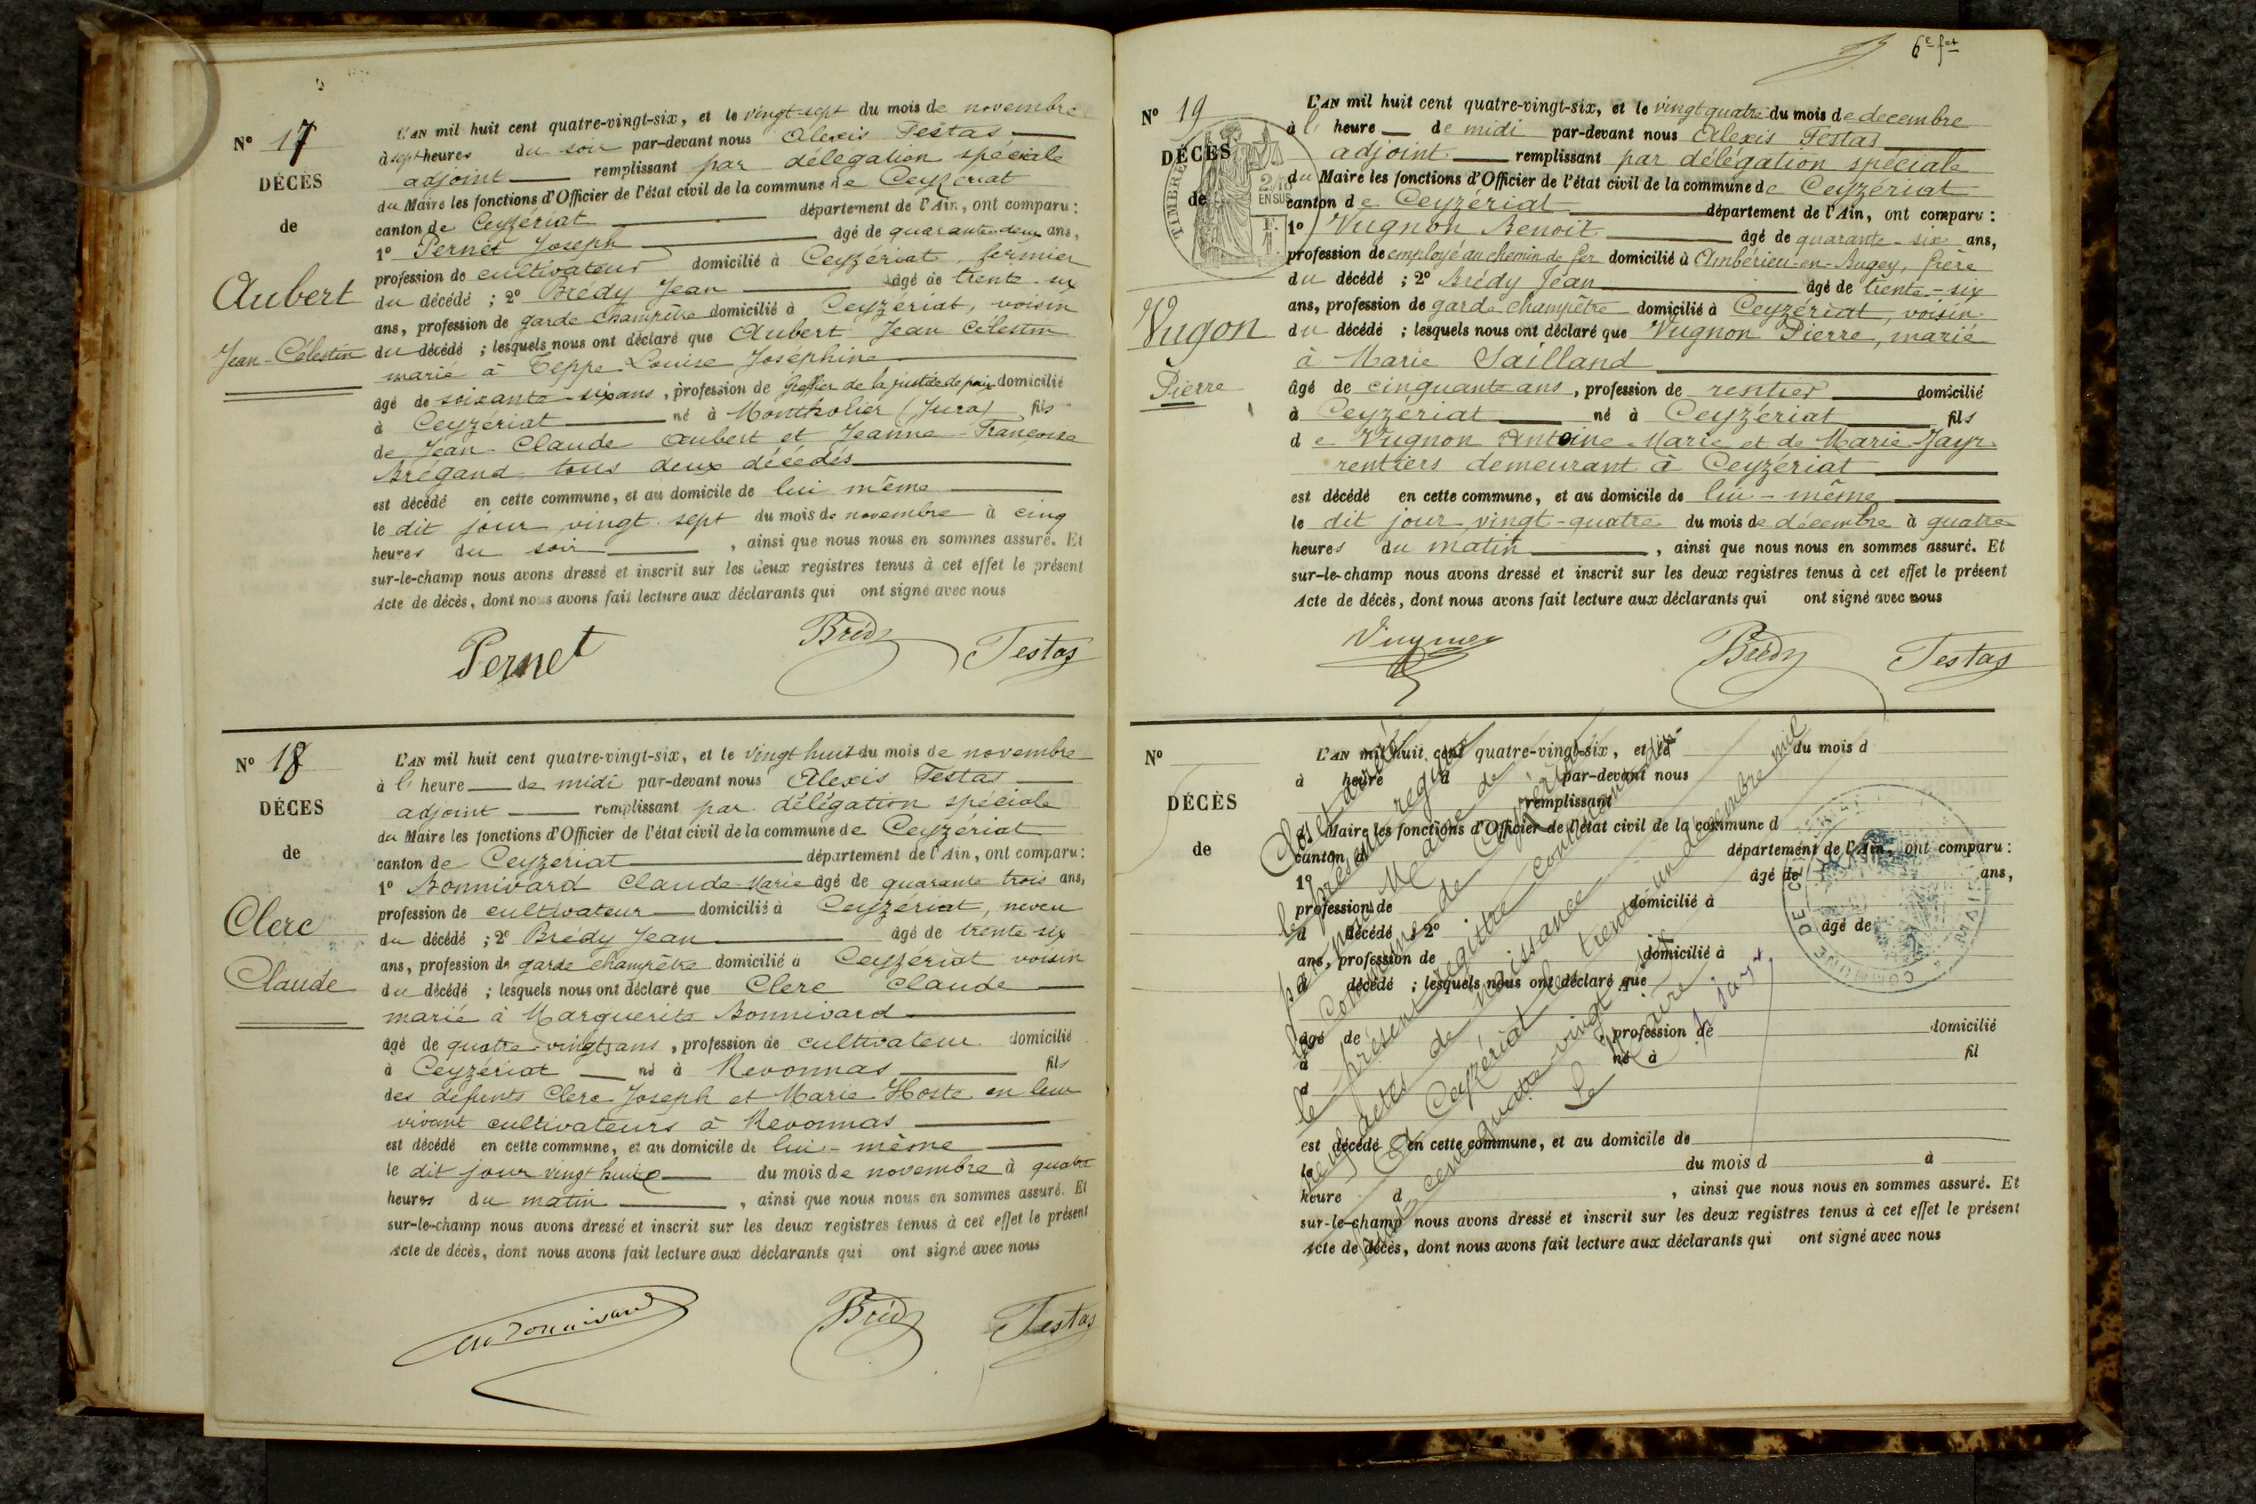 Nº 17
DÉCÈS
de
Aubert
Jean-Célestin
L'AN mil huit cent quatre-vingt-six, et le vingt-sept du mois de novembre
à sept heures du soir par-devant nous Alexis Testas
adjoint remplissant par délégation spéciale
du Maire les fonctions d'Officier de l'état civil de la commune de Ceyzériat
canton de Ceyzériat département de l'Ain, ont comparu :
1º Pernet Joseph âgé de quarante-deux ans,
profession de cultivateur domicilié à Ceyzériat, fermier
du décédé ; 2º Brédy Jean âgé de trente-six
ans, profession de garde champêtre domicilié à Ceyzériat, voisin
du décédé ; lesquels nous ont déclaré que Aubert Jean Célestin
marié à Teppe Louise Joséphine
âgé de soixante-six ans, profession de greffier de la justice de paix domicilié
à Ceyzériat né à Montholier (Jura) fils
de Jean-Claude Aubert et Jeanne-Françoise
Brégand tous deux décédés
est décédé en cette commune, et au domicile de lui même
le dit jour vingt-sept du mois de novembre à cinq
heures du soir , ainsi que nous nous en sommes assuré. Et
sur-le-champ nous avons dressé et inscrit sur les deux registres tenus à cet effet le présent
Acte de décès, dont nous avons fait lecture aux déclarants qui ont signé avec nous
Pernet Brédy Testas
Nº 18
DÉCES
de
Clerc
Claude
L'AN mil huit cent quatre-vingt-six, et le vingt huit du mois de novembre
à l' heure de midi par-devant nous Alexis Testas
adjoint remplissant par délégation spéciale
du Maire les fonctions d'Officier de l'état civil de la commune de Ceyzériat
canton de Ceyzeriat département de l'Ain, ont comparu :
1º Bonnivard Claude-Marie âgé de quarante trois ans,
profession de cultivateur domicilié à Ceyzériat, neveu
du décédé ; 2º Brédy Jean âgé de trente six
ans, profession de garde champêtre domicilié à Ceyzériat voisin
du décédé ; lesquels nous ont déclaré que Clerc Claude
marié à Marguerite Bonnivard
âgé de quatre-vingts ans, profession de cultivateur domicilié
à Ceyzériat né à Revonnas fils
des défunts Clerc Joseph et Marie Hoste en leur
vivant cultivateurs à Revonnas
est décédé en cette commune, et au domicile de lui-même
le dit jour vingt huit du mois de novembre à quatre
heures du matin , ainsi que nous nous en sommes assuré. Et
sur-le-champ nous avons dressé et inscrit sur les deux registres tenus à cet effet le présent
Acte de décès, dont nous avons fait lecture aux déclarants qui ont signé avec nous
Brédy Testas
6e fet
Nº 19
DÉCÈS
de
TIMBRE
2/10
EN SUS
Vugon
Pierre
L'AN mil huit cent quatre-vingt-six, et le vingt quatre du mois de decembre
à l' heure de midi par-devant nous Alexis Testas
adjoint remplissant par délégation spéciale
du Maire les fonctions d'Officier de l'état civil de la commune de Ceyzériat
canton de Ceyzériat département de l'Ain, ont comparu :
1º Vugnon Benoit âgé de quarante-six ans,
profession de employé au chemin de fer domicilié à Ambérieu-en-Bugey, frère
du décédé ; 2º Brédy Jean âgé de trente-six
ans, profession de garde champêtre domicilié à Ceyzériat, voisin
du décédé ; lesquels nous ont déclaré que Vugnon Pierre, marié
à Marie Sailland
âgé de cinquante ans, profession de rentier domicilié
à Ceyzériat né à Ceyzériat fils
de Vugnon Antoine-Marie et de Marie Jayr
rentiers demeurant à Ceyzériat
est décédé en cette commune, et au domicile de lui-même
le dit jour vingt-quatre du mois de décembre à quatre
heures du matin , ainsi que nous nous en sommes assuré. Et
sur-le-champ nous avons dressé et inscrit sur les deux registres tenus à cet effet le présent
Acte de décès, dont nous avons fait lecture aux déclarants qui ont signé avec nous
Brédy Testas
Nº
DÉCÈS
de
L'AN mil huit cent quatre-vingt-six, et le du mois d
à heure d par-devant nous
remplissant
d Maire les fonctions d'Officier de l'état civil de la commune d
canton d département de l'Ain, ont comparu :
1º âgé de ans,
profession de domicilié à
d décédé ; 2º âgé de
ans, profession de domicilié à
d décédé ; lesquels nous ont déclaré que
âgé de profession de domicilié
à né à fil
d
est décédé en cette commune, et au domicile de
le du mois d à
heure d , ainsi que nous nous en sommes assuré. Et
sur-le-champ nous avons dressé et inscrit sur les deux registres tenus à cet effet le présent
Acte de décès, dont nous avons fait lecture aux déclarants qui ont signé avec nous
Clos et arrêté
le présent registre
par nous Maire de
la Commune de Ceyzériat
le présent registre contenant dix-
neuf actes de naissance
A Ceyzériat le trente un décembre mil
huit cent quatre vingt six
Le Maire
COMMUNE DE